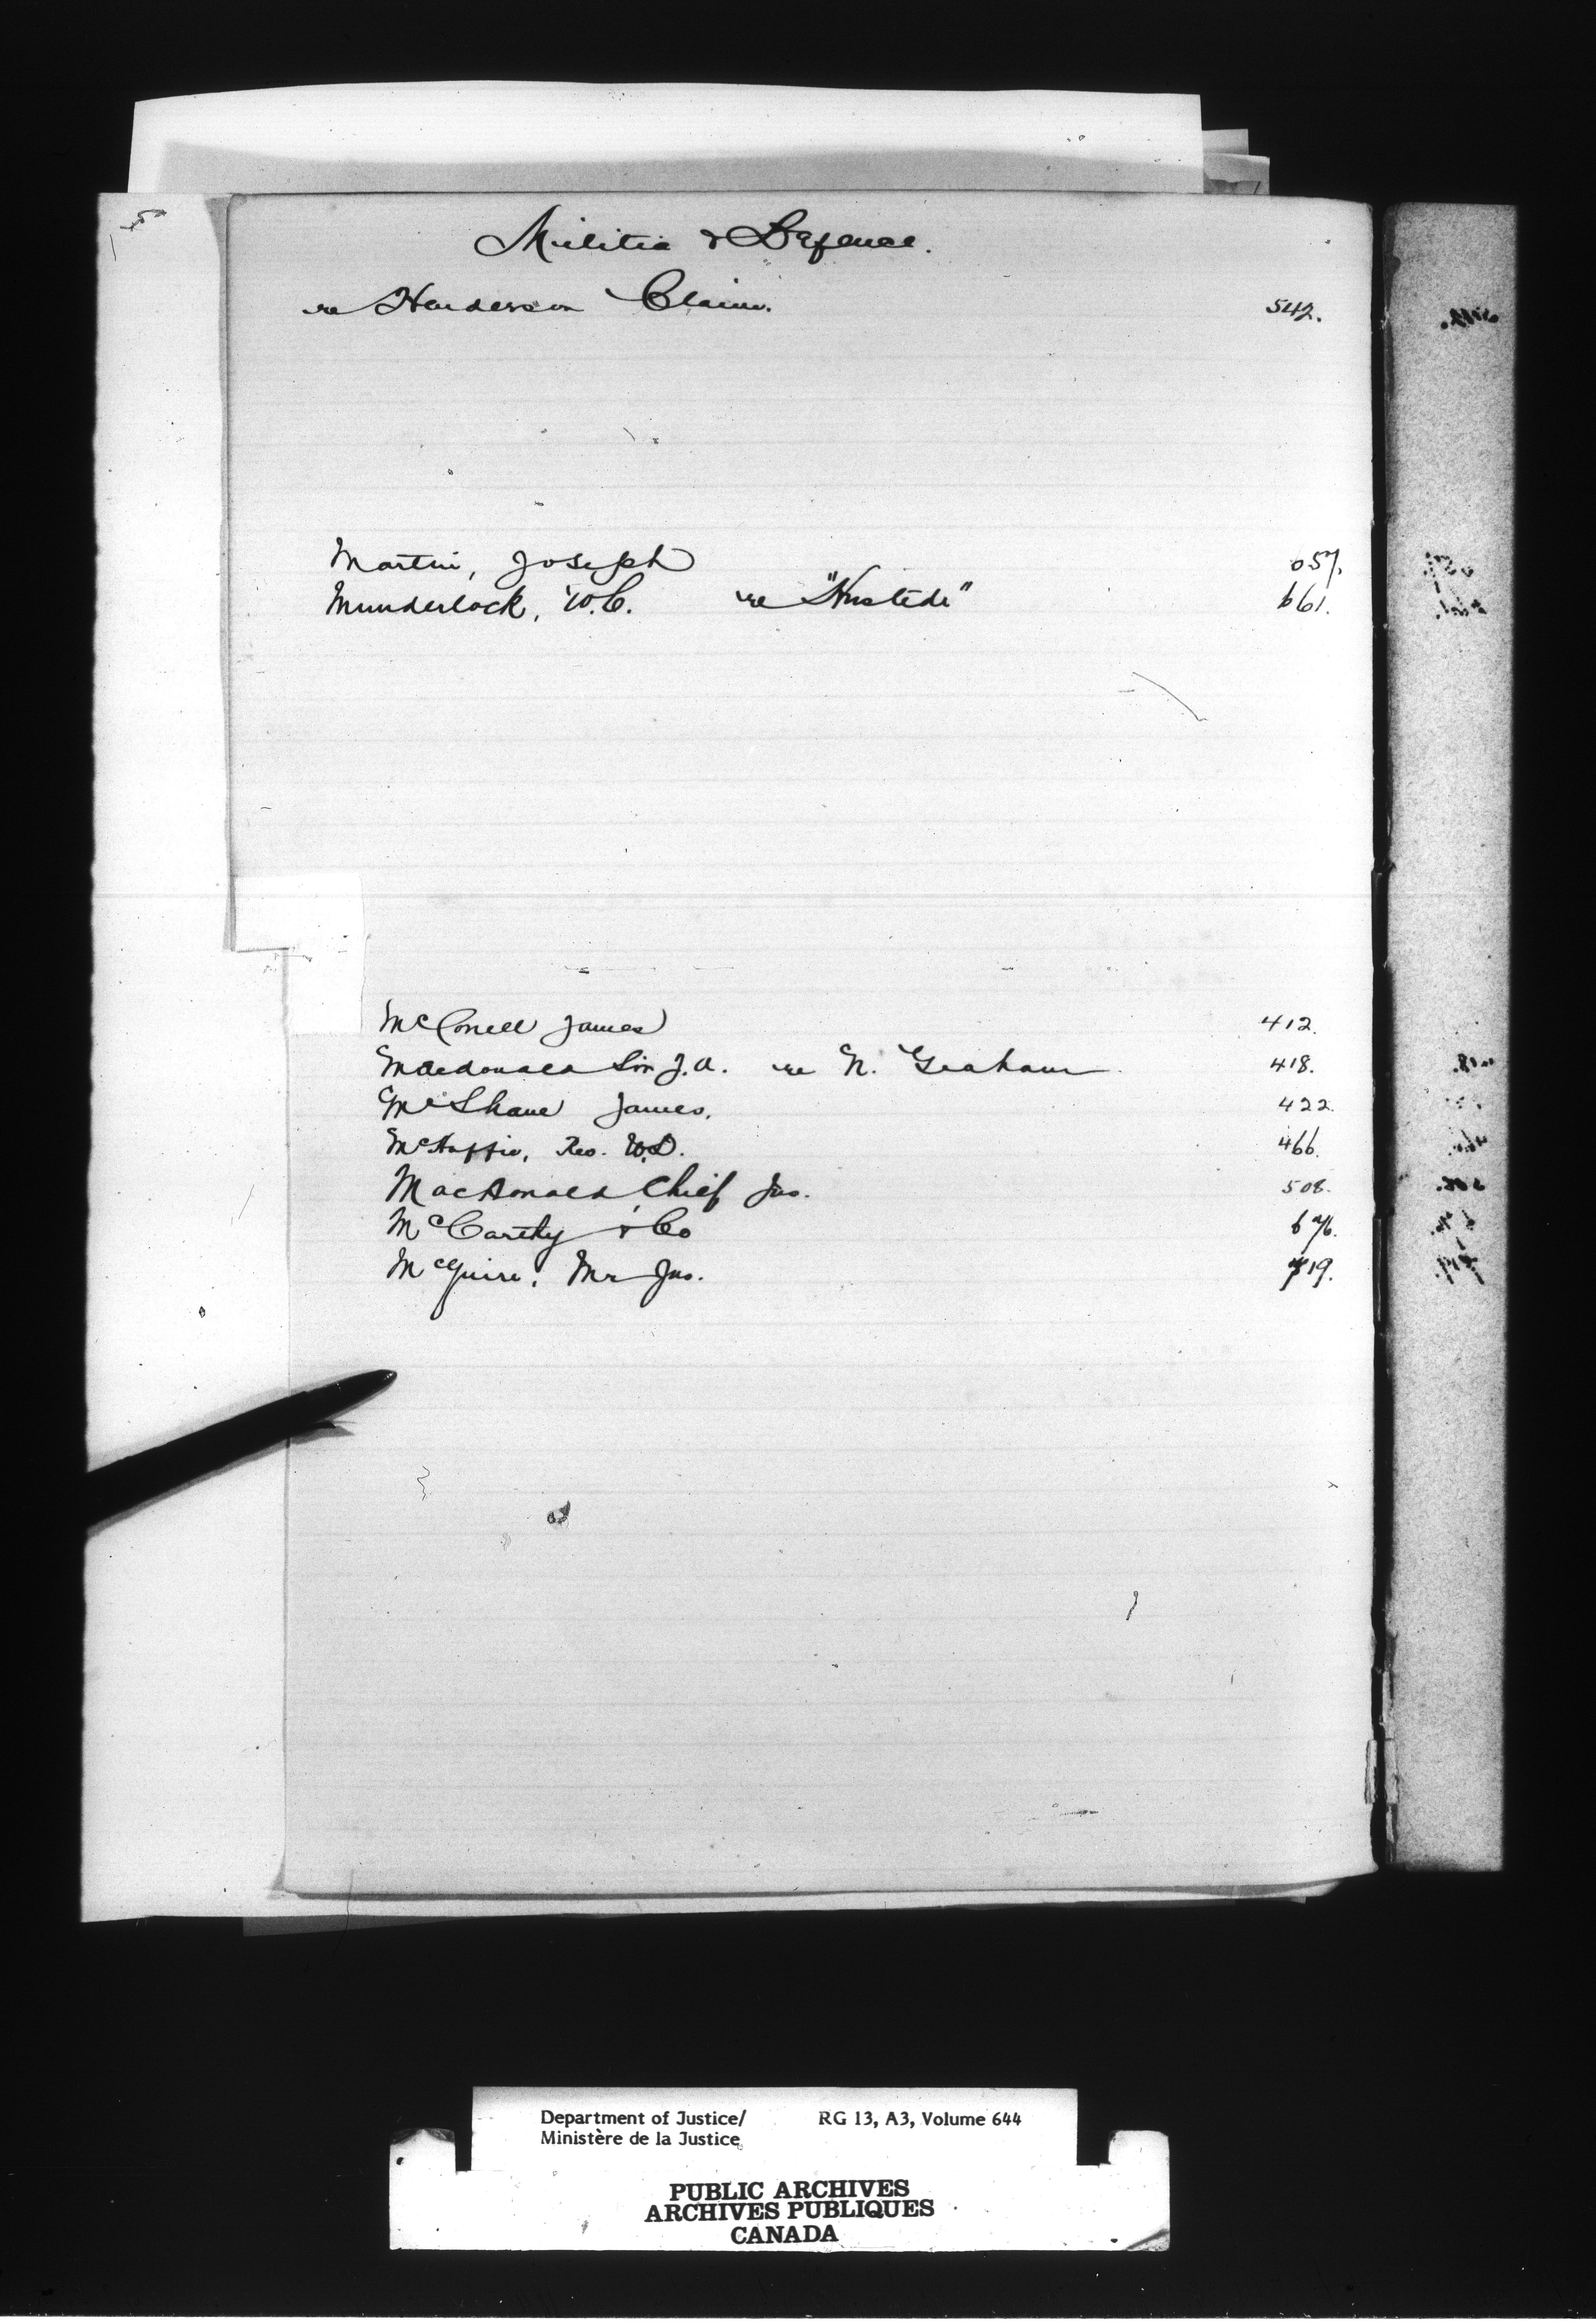 Militia & Defence.
re Henderson Claim. 542.
Martin, Joseph 657.
Munderlock, W.C. re "Hustede" 661.
McConell James 412.
Macdonald Sir J.A. re N. Graham 418.
McShane James. 422.
McHaffie, Rev. W.D. 466.
MacDonald, Chief Jus. 508.
McCarthy & Co 676.
McGuire, Mr Jus. 719.
Department of Justice/ RG 13, A3, Volume 644
Ministère de la Justice
PUBLIC ARCHIVES
ARCHIVES PUBLIQUES
CANADA